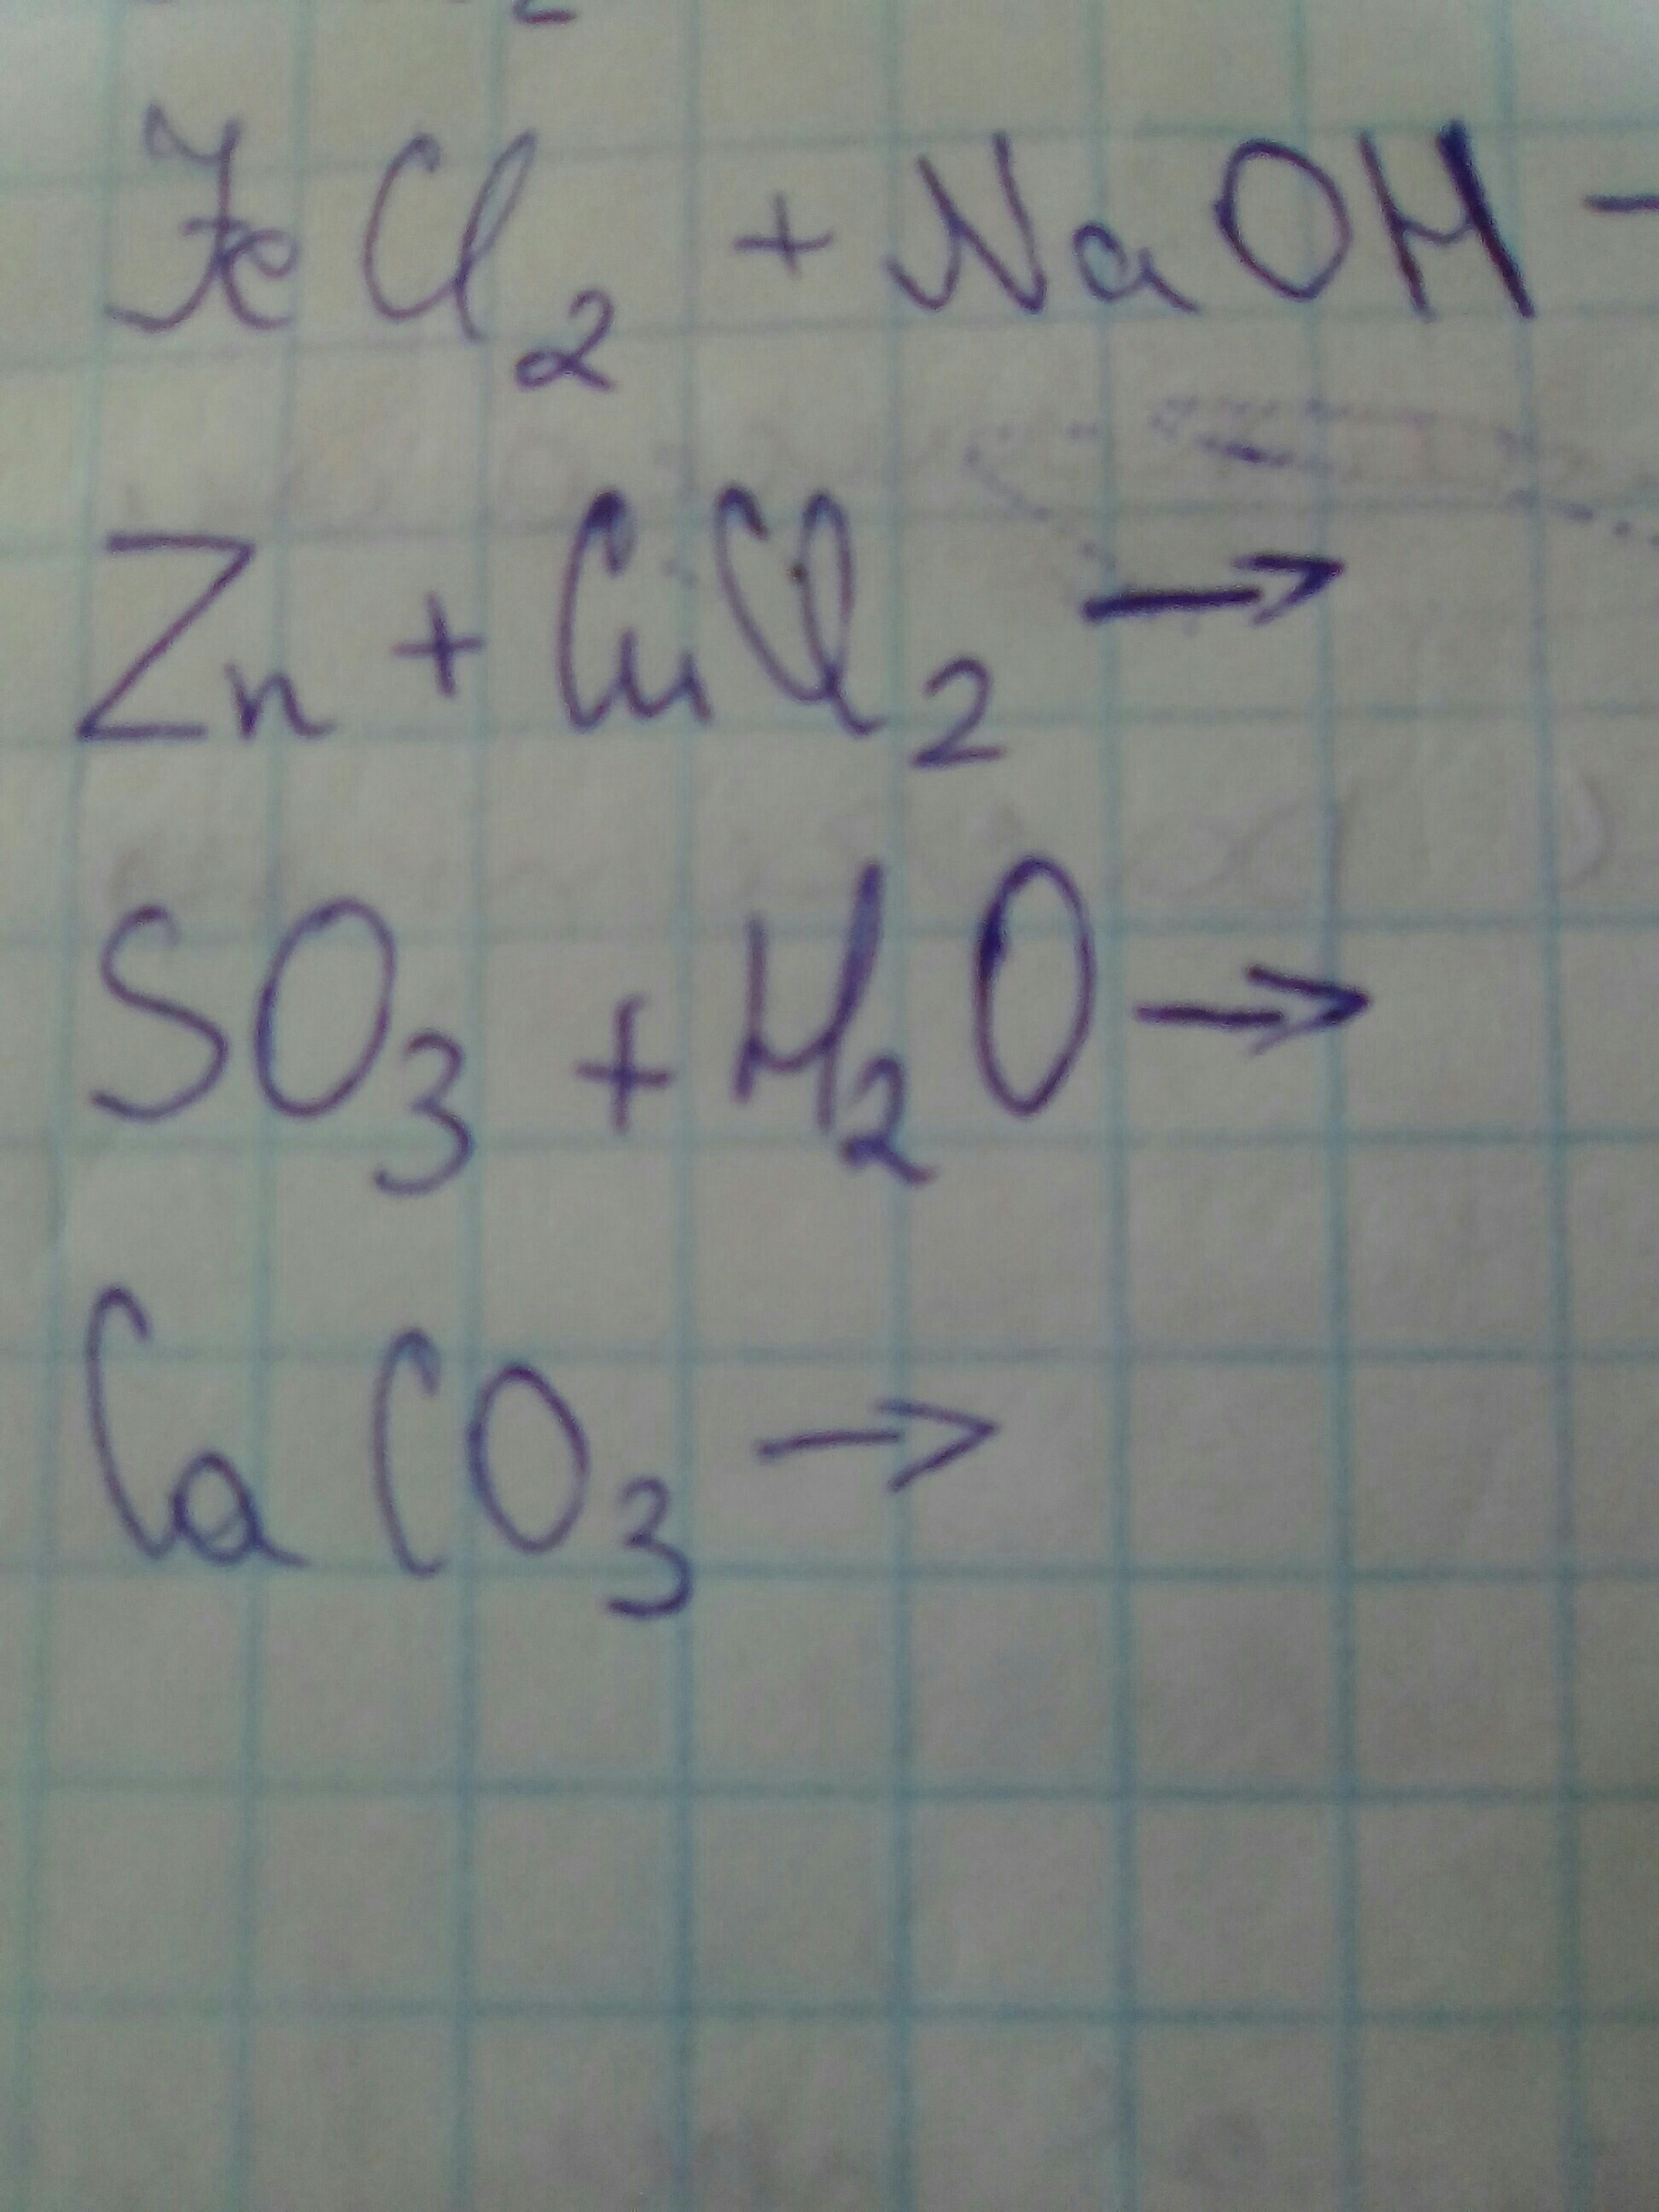 FeCl₂ + NaOH -
Zn + CuCl₂ →
SO₃ + H₂O →
CaCO₃ →